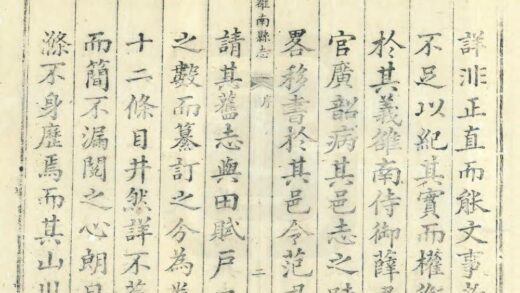 詳非正直而能文事
不足以紀其實而權衡
於其義雒南侍御薛
官廣韶病其邑志之
畧移書於其邑令范
雒南縣志
序
二
請其舊志與田賦戸
之數而纂訂之分為
十二條目井然詳不
而簡不漏閱之心朗
滌不身歷焉而其山川